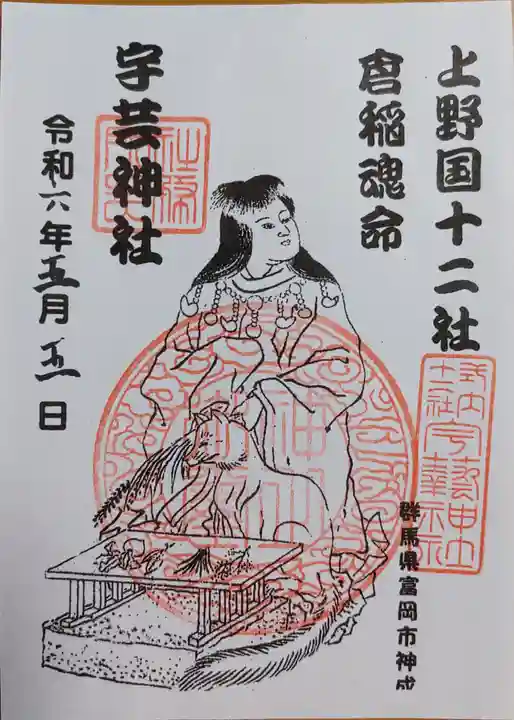 上野国十二社
倉稲魂命
宇芸神社
令和六年五月五日
群馬県富岡市神成
式内
十二社
宇藝神社